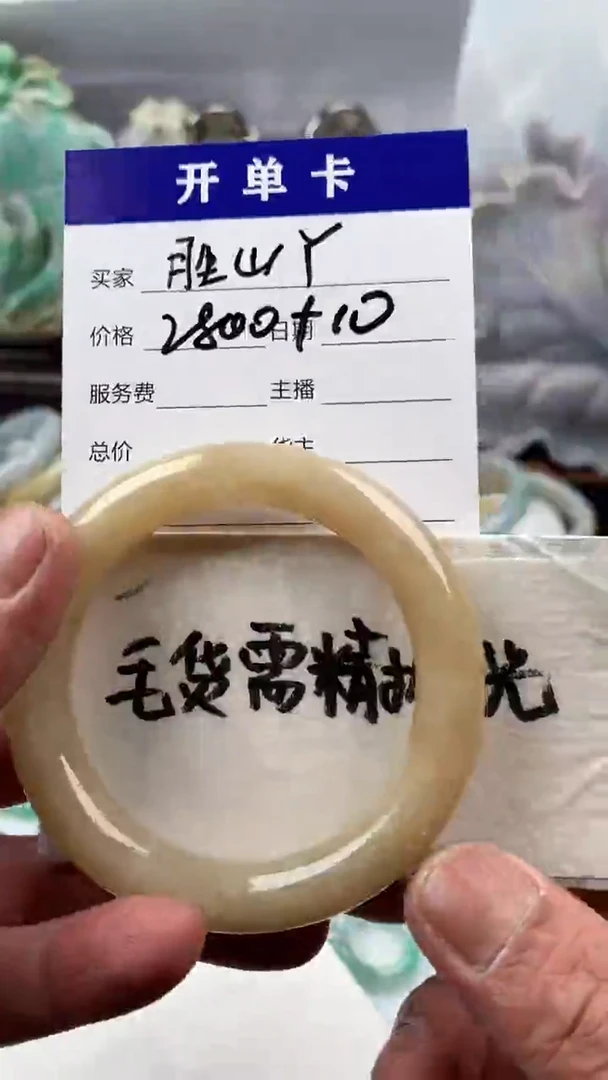 开单卡
买家 胜山丫
价格 2800+10 日期
服务费 主播
总价 货主
毛货需精 光